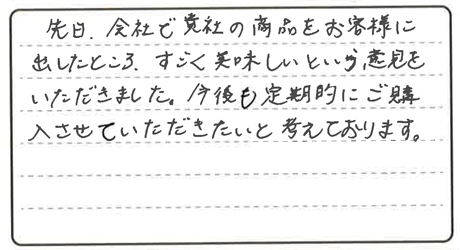 先日、会社で貴社の商品をお客様に
出したところ、すごく美味しいという意見を
いただきました。今後も定期的にご購
入させていただきたいと考えております。